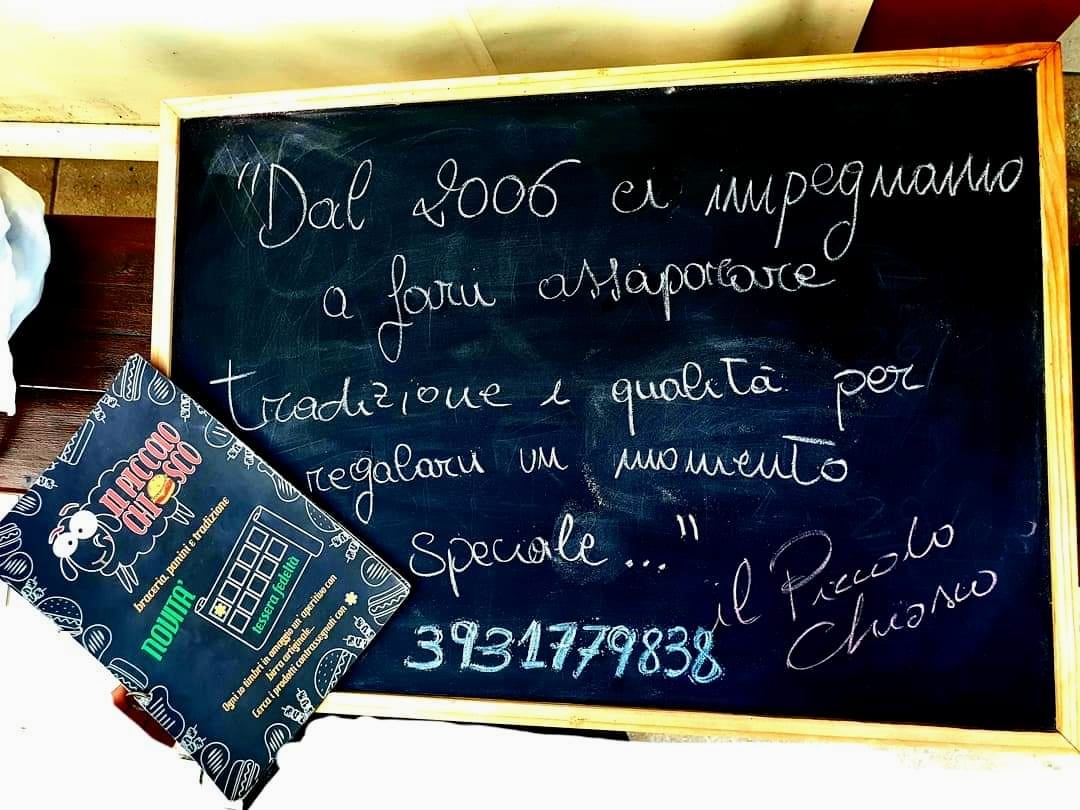 "Dal 2006 ci impegnamo
a farvi assaporare
tradizione e qualità per
regalarvi un momento
speciale..."
il Piccolo
Chiosco
3931779838
IL PICCOLO
CHIOSCO
braceria, panini e tradizione
NOVITA'
tessera fedeltà
Ogni 10 timbri in omaggio un'aperitivo con
birra artigianale...
Cerca i prodotti contrassegnati con